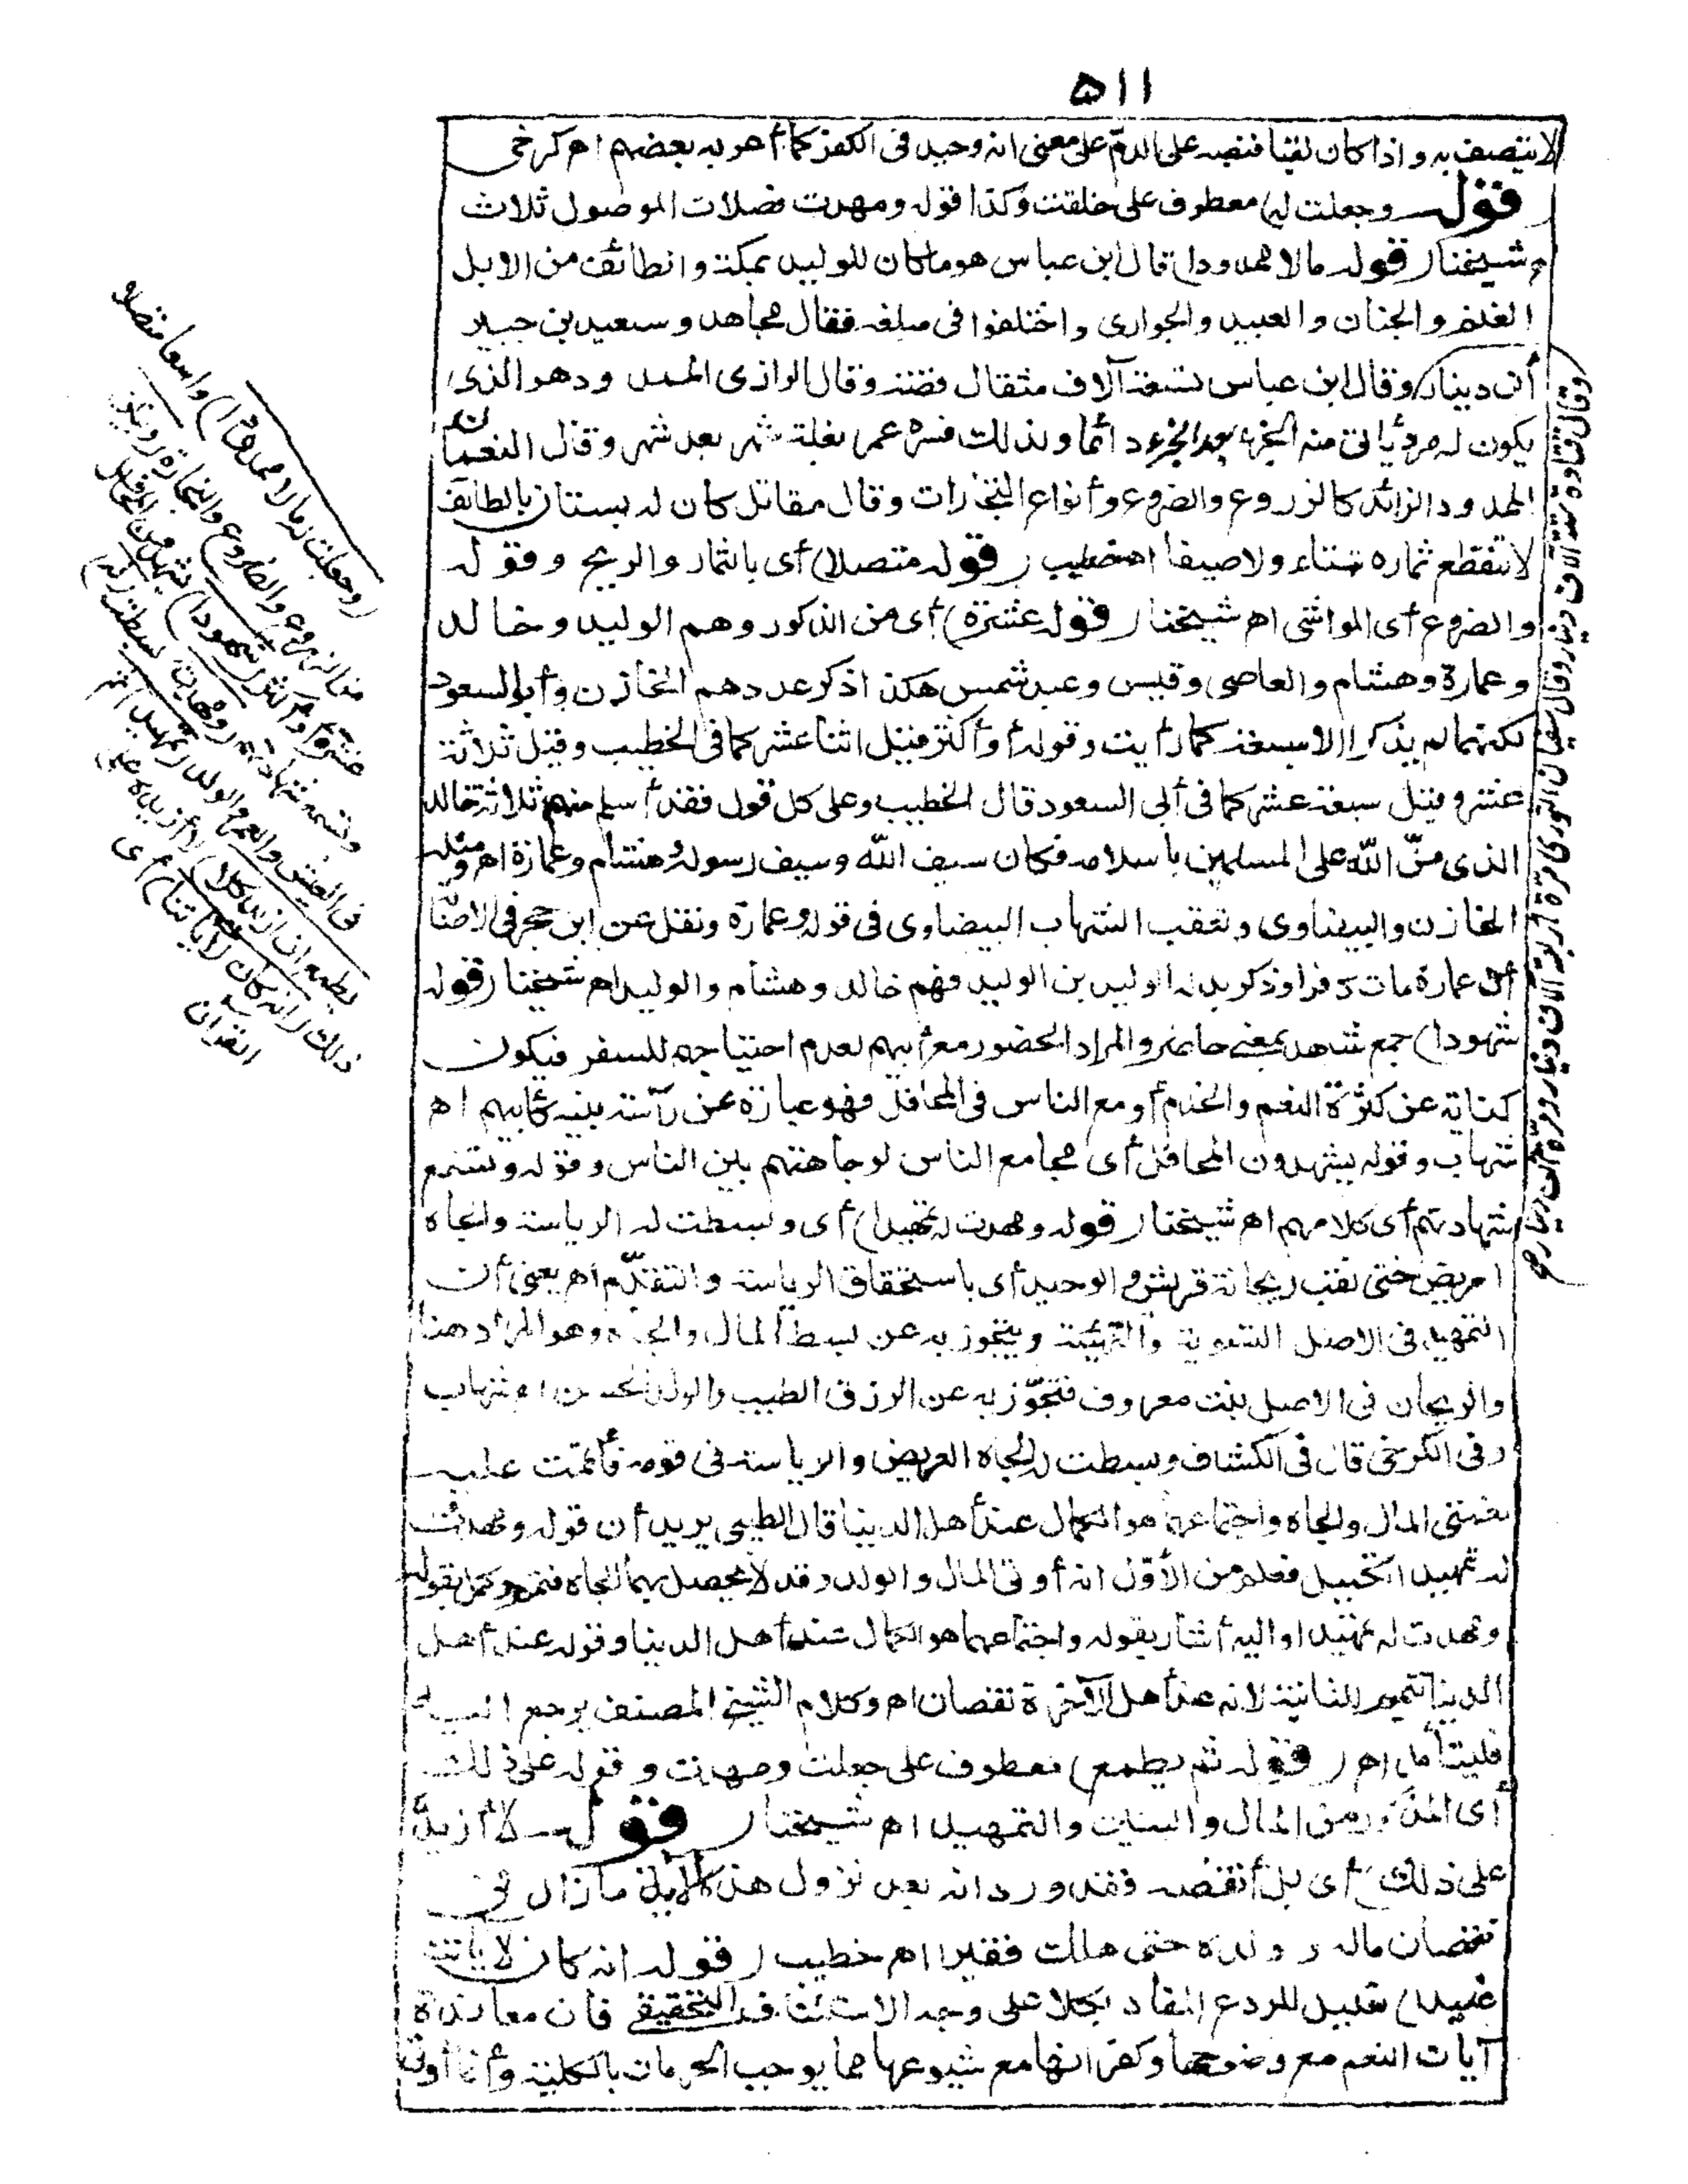 ٥١١
لا يتصف به واذا كان لقبا فنصبه على الذمّ على معنى انه وحيد فى الكفر كما أهو به بعضهم اه كرخى
قوله وجعلت له) معطوف على خلقت وكذا قوله ومهدت فصلات الموصول ثلاث
اه شيخنا (قوله مالا ممدودا) قال ابن عباس هو ما كان للوليد بمكة والطائف من الابل
الغنم والجنان والعبيد والجوارى واختلفوا فى مبلغه فقال مجاهد وسعيد بن جبير
ألف دينار وقال ابن عباس تسعة آلاف مثقال فضة وقال الرازى الممدود هو الذى
يكون له مدد يأتى منه الجزء بعد الجزء دائما ولذلك فسره عمر بغلة شهر بعد شهر وقال النعمان
الممدود الزائد كالزروع والضروع وأنواع التجارات وقال مقاتل كان له بستان بالطائف
لا تنقطع ثماره شتاء ولا صيفا اه خطيب (قوله متصلا) أى بالثمار والربح وقوله
والضروع أى المواشى اه شيخنا (قوله عشرة) أى من الذكور وهم الوليد وخالد
وعمارة وهشام والعاصى وقيس وعبد شمس هكذا ذكر عددهم الخازن وأبو السعود
لكنهما لم يذكرا الا سبعة كما رأيت وقوله أو أكثر قيل اثنا عشر كما فى الخطيب وقيل ثلاثة
عشر وقيل سبعة عشر كما فى أبى السعود قال الخطيب وعلى كل قول فقد أسلم منهم ثلاثة خالد
الذى منّ الله على المسلمين باسلامه فكان سيف الله وسيف رسوله وهشام وعمارة اه ومثله
الخازن والبيضاوى وتعقب الشهاب البيضاوى فى قوله وعمارة ونقل عن ابن حجر فى الاصابة
أن عمارة مات كافرا وذكر بدله الوليد بن الوليد فهم خالد وهشام والوليد اه شيخنا (قوله
شهودا) جمع شاهد بمعنى حاضر والمراد الحضور مع أبيهم لعدم احتياجهم للسفر فيكون
كناية عن كثرة النعم والخدم أو مع الناس فى المحافل فهو عبارة عن رآسة بنيه كأبيهم اه
شهاب وقوله يشهدون المحافل أى مجامع الناس لوجاهتهم بين الناس وقوله وتسمع
شهادتهم أى كلامهم اه شيخنا (قوله ومهدت له تمهيدا) أى وبسطت له الرياسة والجاه
العريض حتى لقب ريحانة قريش والوحيد أى باستحقاق الرياسة والتقدّم اه يعنى أن
التمهيد فى الاصل التسوية والتهيئة ويتجوز به عن بسطة المال والجاه وهو المراد هنا
والريحان فى الاصل نبت معروف فتجوّز به عن الرزق الطيب والولد الحسن اه شهاب
وفى الكرخى قال فى الكشاف وبسطت له الجاه العريض والرياسة فى قومه فأتممت عليه
نعمتى المال والجاه واجتماعهما هو الكمال عند أهل الدنيا قال الطيبى يريد أن قوله ومهدت
له تمهيدا تكميل فعلم من الأوّل انه أوتى المال والولد وقد لا يحصل بهما الجاه فتمم وكمل بقوله
ومهدت له تمهيدا واليه أشار بقوله واجتماعهما هو الكمال عند أهل الدنيا وقوله عند أهل
الدنيا تتميم للثانية لانه عند أهل الآخرة نقصان اه وكلام الشيخ المصنف يرجع اليه
فليتأمل اه (قوله ثم يطمع) معطوف على جعلت ومهدت وقوله على ذلك
أى المذكور من المال والبنين والتمهيد اه شيخنا (قوله لا أزيد
على ذلك) أى بل أنقصه فقد ورد انه بعد نزول هذه الآية ما زال فى
نقصان ماله وولده حتى هلك فقيرا اه خطيب (قوله انه كان لآياتنا
عنيدا) تعليل للردع المفاد بكلا على وجه الاستئناف التحقيقى فان معاندة
آيات النعم مع وضوحها وكفرانها مع شيوعها مما يوجب الحرمان بالكلية وانما أوتى
وقال قتادة ستة آلاف دينار وقال سفيان الثورى مرة أربعة آلاف دينار ومرة ألف دينار صح
(وجعلت له مالا ممدودا) واسعا متصلا
من الزروع والضروع والتجارة (وبنين)
عشرة أو أكثر (شهودا) يشهدون المحافل
وتسمع شهادتهم (ومهدت) بسطت (له)
فى العيش والعمر والولد (تمهيدا ثم
يطمع ان أزيد كلا) لا أزيده على
ذلك (انه كان لآياتنا) أى
القرآن